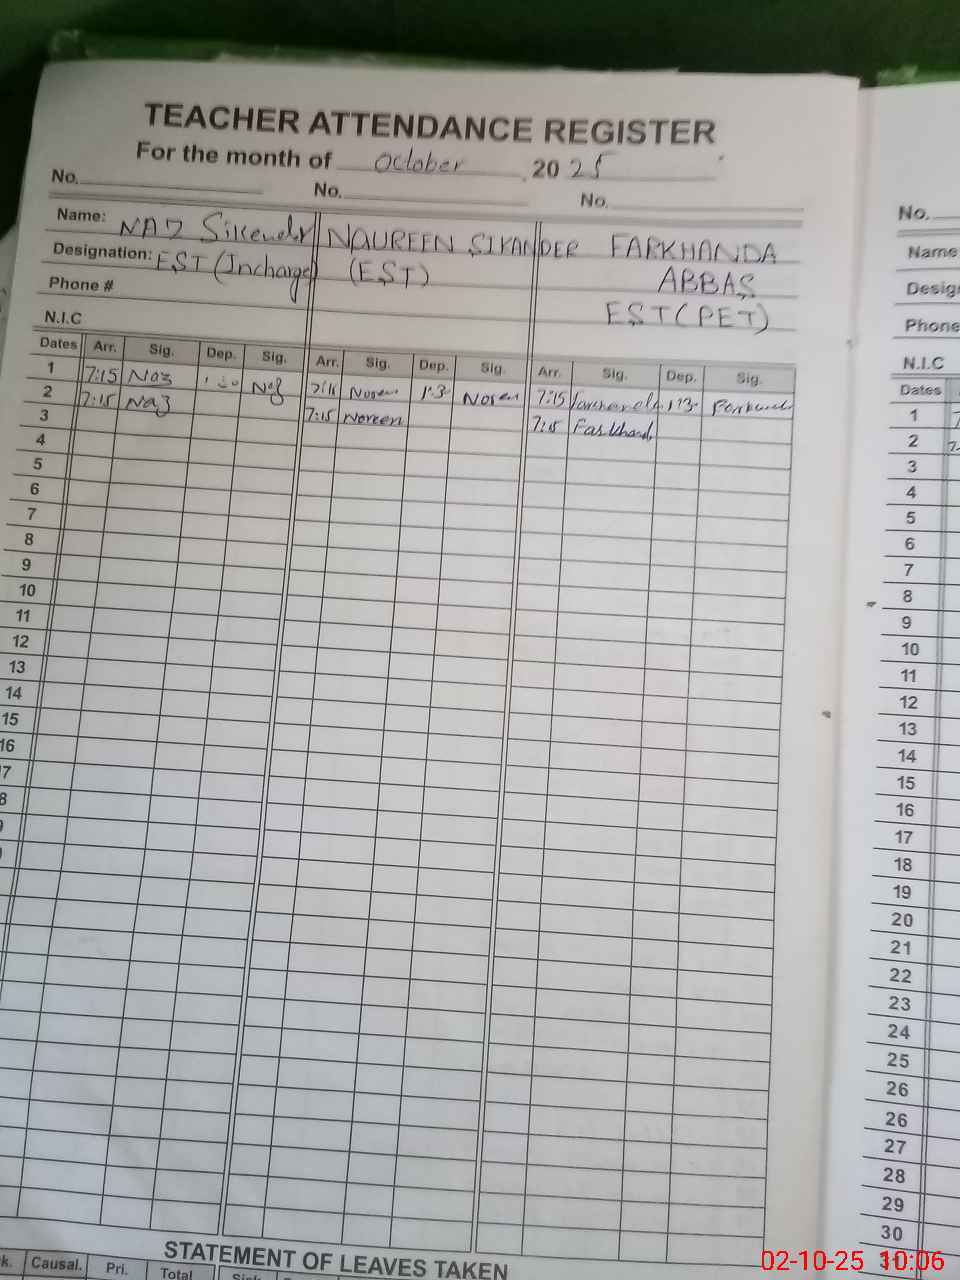 TEACHER ATTENDANCE REGISTER
For the month of October 2025
No. No. No.
Name: NAZ Sikender NAUREEN SIKANDER FARKHANDA
Designation: EST (Incharge) (EST) ABBAS
Phone # EST (PET)
N.I.C
Dates Arr. Sig. Dep. Sig. Arr. Sig. Dep. Sig. Arr. Sig. Dep. Sig.
1 7:15 Naz Naz 7:15 Noreen 1:3 Noreen 7:15 1:3
2 7:15 Naz 7:15 Noreen 7:15 Farkhand
3
4
5
6
7
8
9
10
11
12
13
14
15
16
7
8
STATEMENT OF LEAVES TAKEN
k. Causal. Pri. Total Sick
No.
Name
Desig
Phone
N.I.C
Dates
1
2
3
4
5
6
7
8
9
10
11
12
13
14
15
16
17
18
19
20
21
22
23
24
25
26
26
27
28
29
30
31
02-10-25 10:06